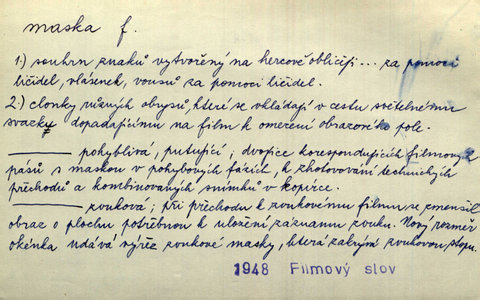 maska f.
1.) souhrn znaků vytvořený na hercově obličeji ... za pomoci
líčidel, vlásenek, vousů za pomoci líčidel.
2.) clonky různých obrysů, které se vkládají v cestu světelnému
svazku dopadajícímu na film k omezení obrazového pole.
——— pohyblivá, putující; dvojice korespondujících filmových
pásů s maskou v pohybových fázích, k zhotovování technických
přechodů a kombinovaných snímků v kopírce.
——— zvuková; při přechodu k zvukovému filmu se zmenšil
obraz o plochu potřebnou k uložení záznamu zvuku. Nový rozměr
okénka udává výřez zvukové masky, která zakryje zvukovou stopu.
1948 Filmový slov